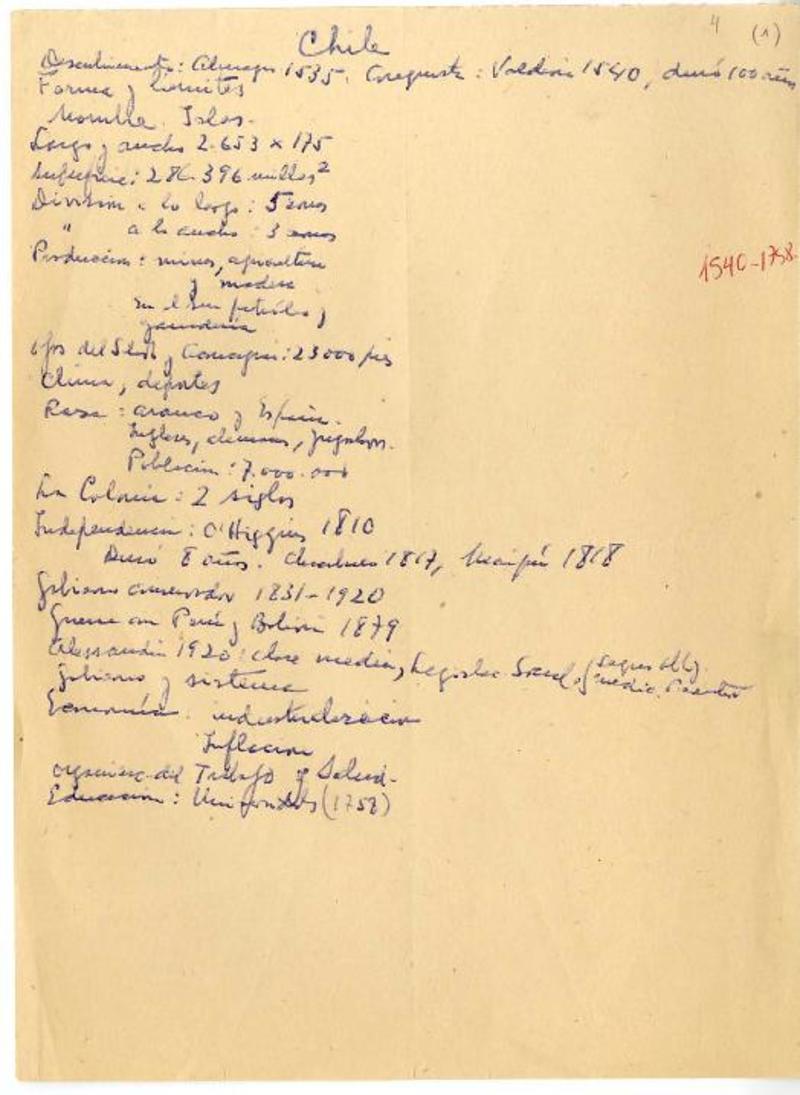 4 (1)
Chile
Descubrimiento: Almagro 1535. Conquista: Valdivia 1540, duró 100 años
Forma y límites
Nombre. Islas.
Largo y ancho 2.653 x 175
Superficie: 286.396 millas²
División a lo largo: 5 zonas
" a lo ancho: 3 zonas
1540-1758
Producción: minas, agricultura
y madera
en el Sur petróleo y
ganadería
del y Aconcagua: 23000 pies
Clima, deportes
Raza: arauco y Españ.
Ingleses, alemanes, yugoslavos.
Población: 7.000.000
La Colonia: 2 siglos
Independencia: O'Higgins 1810
Duró 8 años. Chacabuco 1817, Maipú 1818
Gobierno conservador 1831-1920
Guerra con Perú y Bolivia 1879
Alessandri 1920: clase media, Legislac. Social.
Gobierno y sistema
Economía. industrialización
Inflación
del Trabajo y Salud.
Educación: (1758)